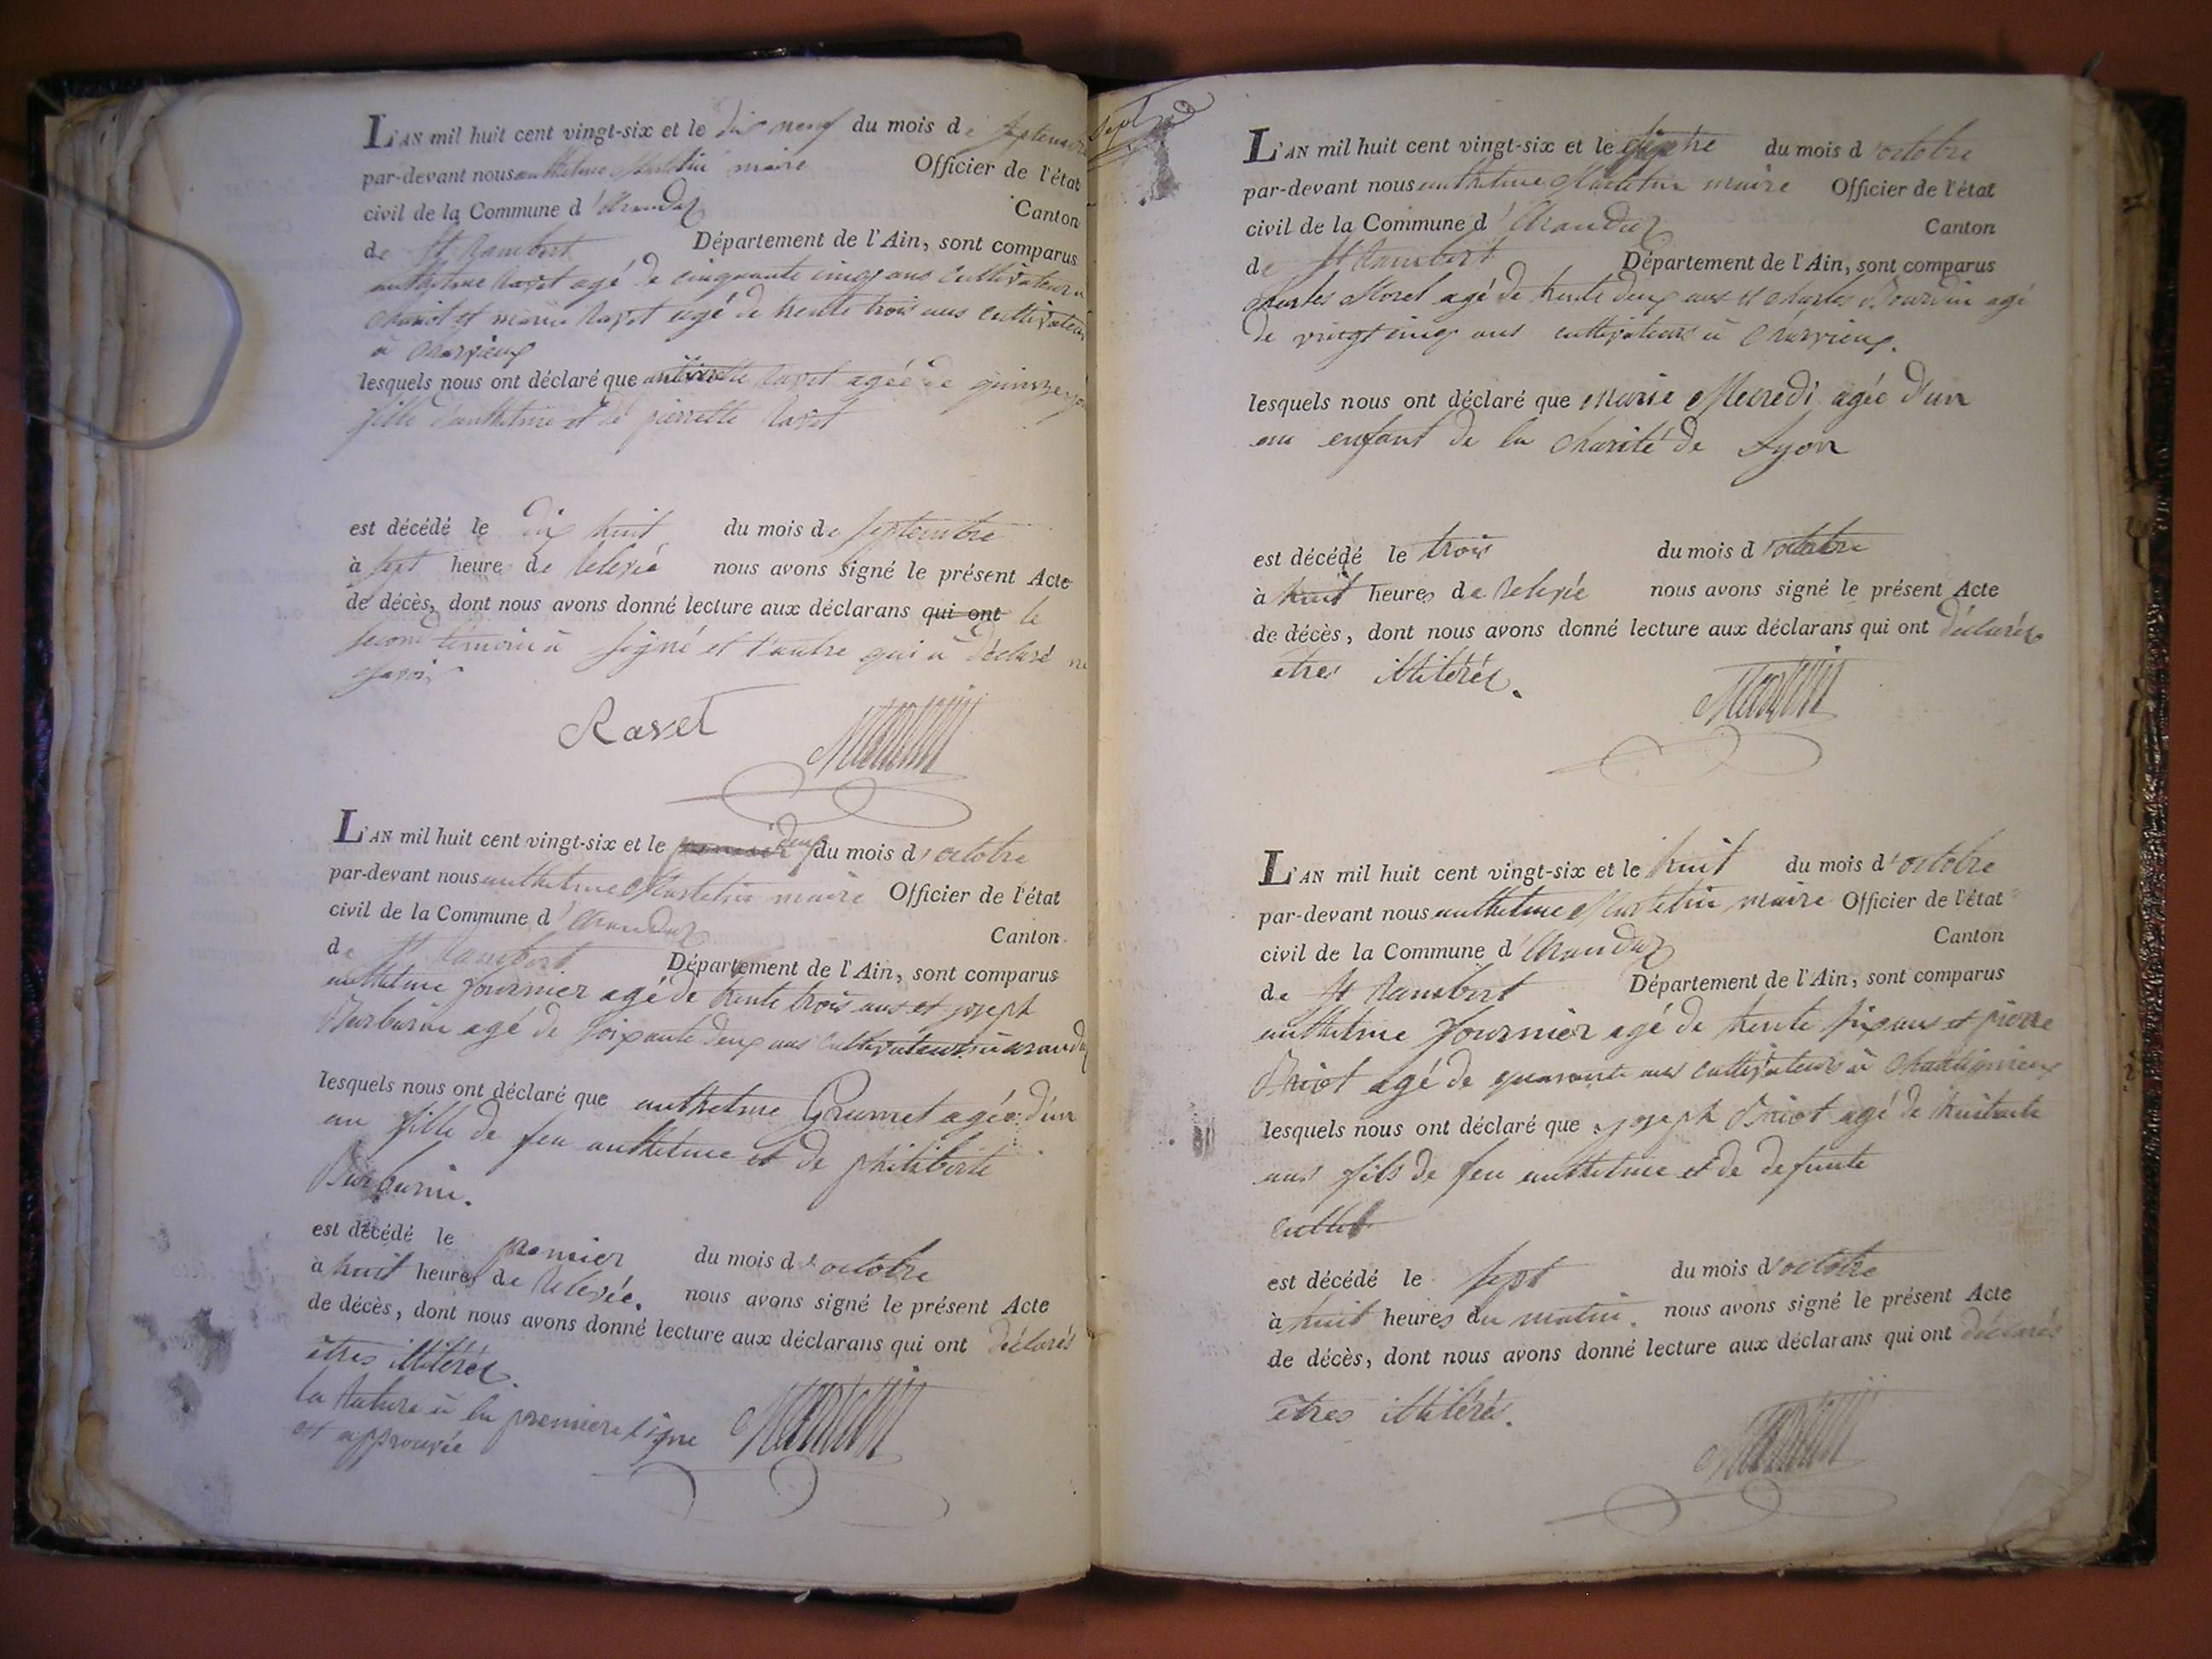 L'AN mil huit cent vingt-six et le dix neuf du mois de septembre
par-devant nous anthelme Martelin maire Officier de l'état
civil de la Commune d'Arandaz Canton
de St Rambert Département de l'Ain, sont comparus
anthelme Ravet agé de cinquante cinq ans cultivateur a
et Ravet agé de trente trois ans cultivateur
à
lesquels nous ont déclaré que Ravet agée de
fille d'anthelme et de pierrette Ravet
est décédé le dix huit du mois de septembre
à sept heures de relevée nous avons signé le présent Acte
de décès, dont nous avons donné lecture aux déclarans qui ont le
second témoin à signé et l'autre qui à déclaré ne
savoir
Ravet Martelin
L'AN mil huit cent vingt-six et le premier deux du mois d'octobre
par-devant nous anthelme Martelin maire Officier de l'état
civil de la Commune d'Arandaz Canton
de St Rambert Département de l'Ain, sont comparus
anthelme fournier agé de trente trois ans et joseph
Burburin agé de soixante deux ans cultivateurs à arandaz
lesquels nous ont déclaré que anthelme Grumet agée d'un
an fille de feu anthelme et de philiberte
Burburin.
est décédé le premier du mois d'octobre
à huit heures de relevée. nous avons signé le présent Acte
de décès, dont nous avons donné lecture aux déclarans qui ont déclarés
êtres illitérés.
la rature à la premiere ligne
est approuvée Martelin
sept
L'AN mil huit cent vingt-six et le du mois d'octobre
par-devant nous anthelme Martelin maire Officier de l'état
civil de la Commune d'Arandaz Canton
de St Rambert Département de l'Ain, sont comparus
charles Morel agé de trente deux ans et charles Bourdin agé
de vingt cinq ans cultivateurs à
lesquels nous ont déclaré que marie Mecredi agée d'un
an enfant de la charité de Lyon
est décédé le trois du mois d'octobre
à huit heures de relevée nous avons signé le présent Acte
de décès, dont nous avons donné lecture aux déclarans qui ont déclarés
êtres illitérés.
Martelin
L'AN mil huit cent vingt-six et le huit du mois d'octobre
par-devant nous anthelme Martelin maire Officier de l'état
civil de la Commune d'Arandaz Canton
de St Rambert Département de l'Ain, sont comparus
anthelme fournier agé de trente six ans et pierre
Briot agé de quarante ans cultivateurs à
lesquels nous ont déclaré que joseph Briot agé de
ans fils de feu anthelme et de defunte
est décédé le sept du mois d'octobre
à huit heures du matin. nous avons signé le présent Acte
de décès, dont nous avons donné lecture aux déclarans qui ont déclarés
êtres illitérés.
Martelin